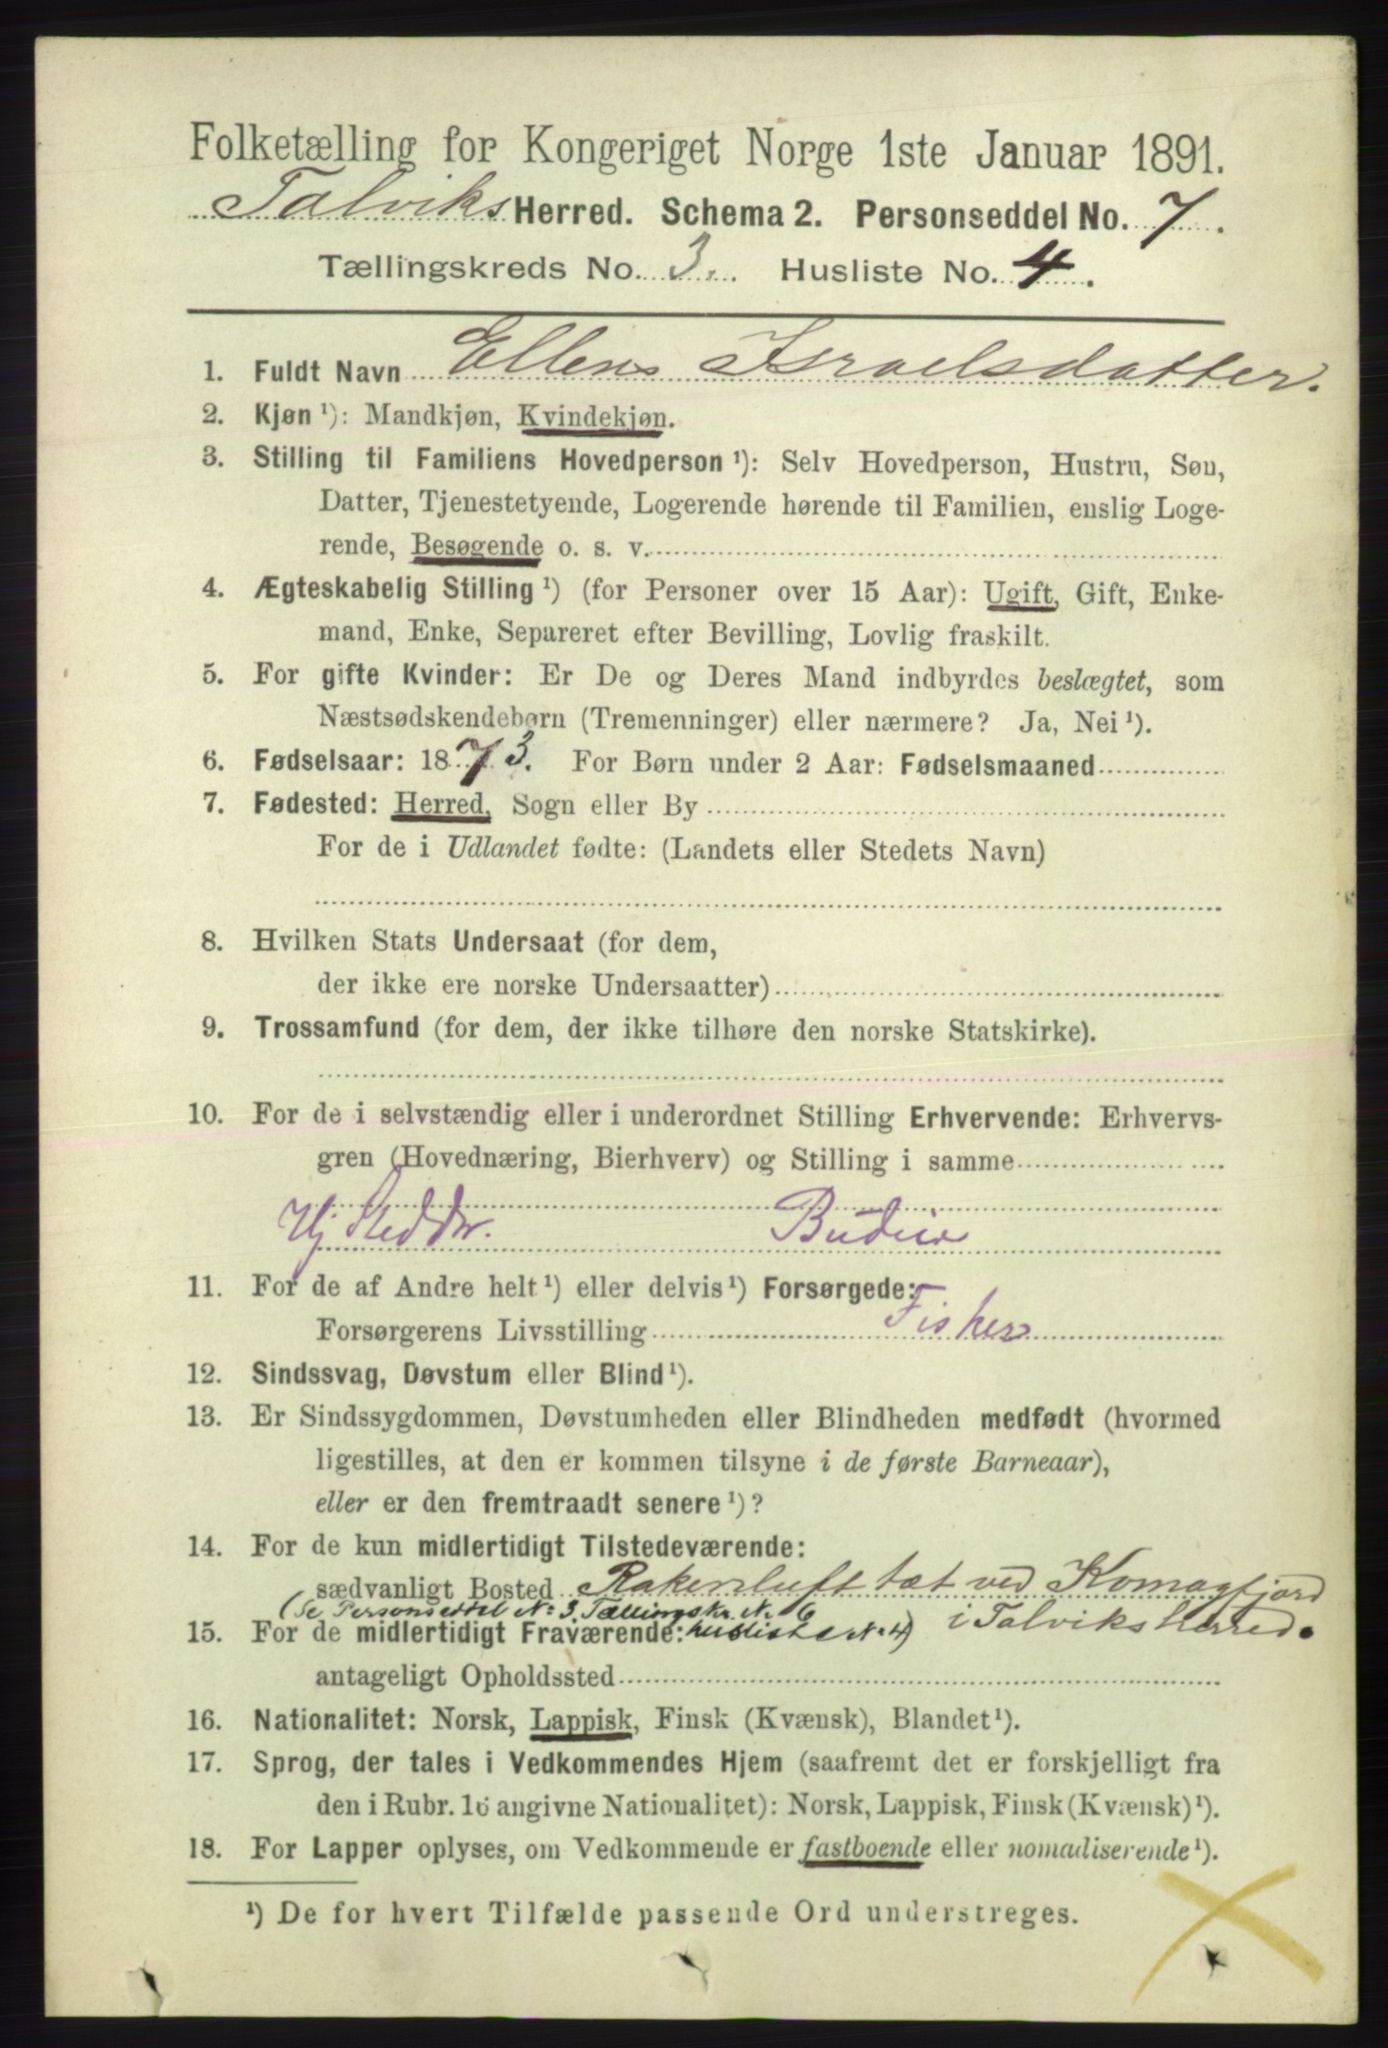 Folketælling for Kongeriget Norge 1ste Januar 1891.
Talviks Herred. Schema 2. Personseddel No. 7.
Tællingskreds No. 3. Husliste No. 4.
1. Fuldt Navn Ellens Israelsdatter.
2. Kjøn ¹): Mandkjøn, Kvindekjøn.
3. Stilling til Familiens Hovedperson ¹): Selv Hovedperson, Hustru, Søn,
Datter, Tjenestetyende, Logerende hørende til Familien, enslig Loge-
rende, Besøgende o. s. v.
4. Ægteskabelig Stilling ¹) (for Personer over 15 Aar): Ugift, Gift, Enke-
mand, Enke, Separeret efter Bevilling, Lovlig fraskilt.
5. For gifte Kvinder: Er De og Deres Mand indbyrdes beslægtet, som
Næstsødskendebørn (Tremenninger) eller nærmere? Ja, Nei ¹).
6. Fødselsaar: 1873. For Børn under 2 Aar: Fødselsmaaned
7. Fødested: Herred, Sogn eller By
For de i Udlandet fødte: (Landets eller Stedets Navn)
8. Hvilken Stats Undersaat (for dem,
der ikke ere norske Undersaatter)
9. Trossamfund (for dem, der ikke tilhøre den norske Statskirke).
10. For de i selvstændig eller i underordnet Stilling Erhvervende: Erhvervs-
gren (Hovednæring, Bierhverv) og Stilling i samme
Hj Steddtr. Budeie
11. For de af Andre helt ¹) eller delvis ¹) Forsørgede:
Forsørgerens Livsstilling Fisker
12. Sindssvag, Døvstum eller Blind ¹).
13. Er Sindssygdommen, Døvstumheden eller Blindheden medfødt (hvormed
ligestilles, at den er kommen tilsyne i de første Barneaar),
eller er den fremtraadt senere ¹)?
14. For de kun midlertidigt Tilstedeværende:
sædvanligt Bosted Rakersluft tæt ved Komagfjord
(Se Personseddel N: 3, Tællingskr. No 6
15. For de midlertidigt Fraværende: husliste N: 4) i Talviks herred.
antageligt Opholdssted
16. Nationalitet: Norsk, Lappisk, Finsk (Kvænsk), Blandet ¹).
17. Sprog, der tales i Vedkommendes Hjem (saafremt det er forskjelligt fra
den i Rubr. 16 angivne Nationalitet): Norsk, Lappisk, Finsk (Kvænsk) ¹).
18. For Lapper oplyses, om Vedkommende er fastboende eller nomadiserende ¹).
¹) De for hvert Tilfælde passende Ord understreges.